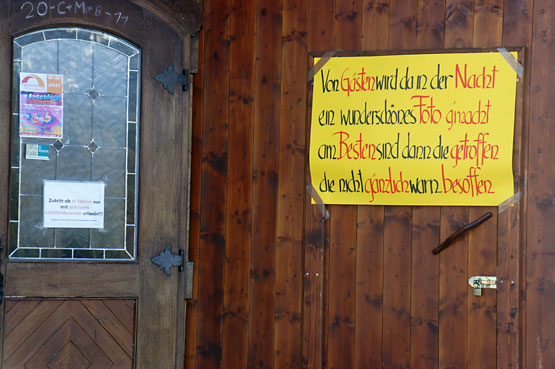 20-C+M+B-11
Von Gästen wird da in der Nacht
ein wunderschönes Foto g'macht
am Besten sind dann die getroffen
die nicht gänzlich warn besoffen
Zutritt ab
nur
mit